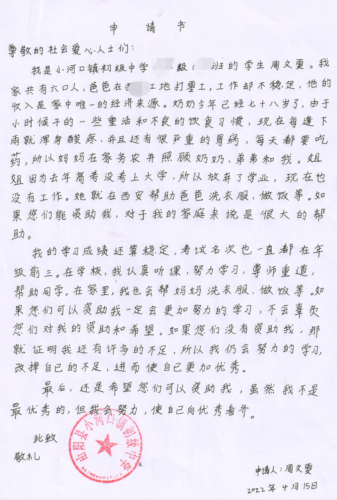 申请书
尊敬的社会爱心人士们：
我是小河口镇初级中学 级（ 班的学生周文雯。我
家共有六口人，爸爸在 工地打零工，工作却不稳定，他的
收入是家中唯一的经济来源。奶奶今年已经七十八岁了，由于
小时候干的一些重活和不良的饮食习惯，现在每逢下
雨就浑身酸疼，并且还有很严重的胃病，每天都要吃
药，所以妈妈在家务农并照顾奶奶，弟弟和我。姐
姐因为去年高考没考上大学，所以放弃了学业，现在也
没有工作。她就在西安帮助爸爸洗衣服，做饭等。如
果您们能资助我，对于我的家庭来说是很大的帮
助。
我的学习成绩还算稳定，考试名次也一直都在年
级前三。在学校，我认真听课，努力学习，尊师重道，
帮助同学。在家里，我也会帮妈妈洗衣服，做饭等。如
果您们可以资助我一定会更加努力的学习，不会辜负
您们对我的资助和希望。如果您们没有资助我，那
就证明我还有许多的不足，所以我仍会努力的学习，
改掉自己的不足，进而使自己更加优秀。
最后，还是希望您们可以资助我，虽然我不是
最优秀的，但我会努力，使自己向优秀看齐。
此致
敬礼
山阳县小河口镇初级中学
申请人：周文雯
2022年4月15日